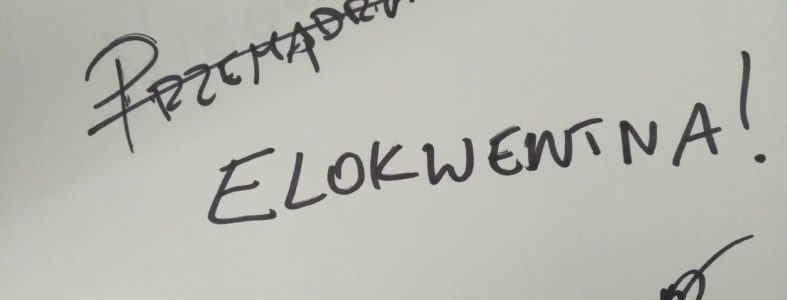 PRZEMĄDR
ELOKWENTNA!